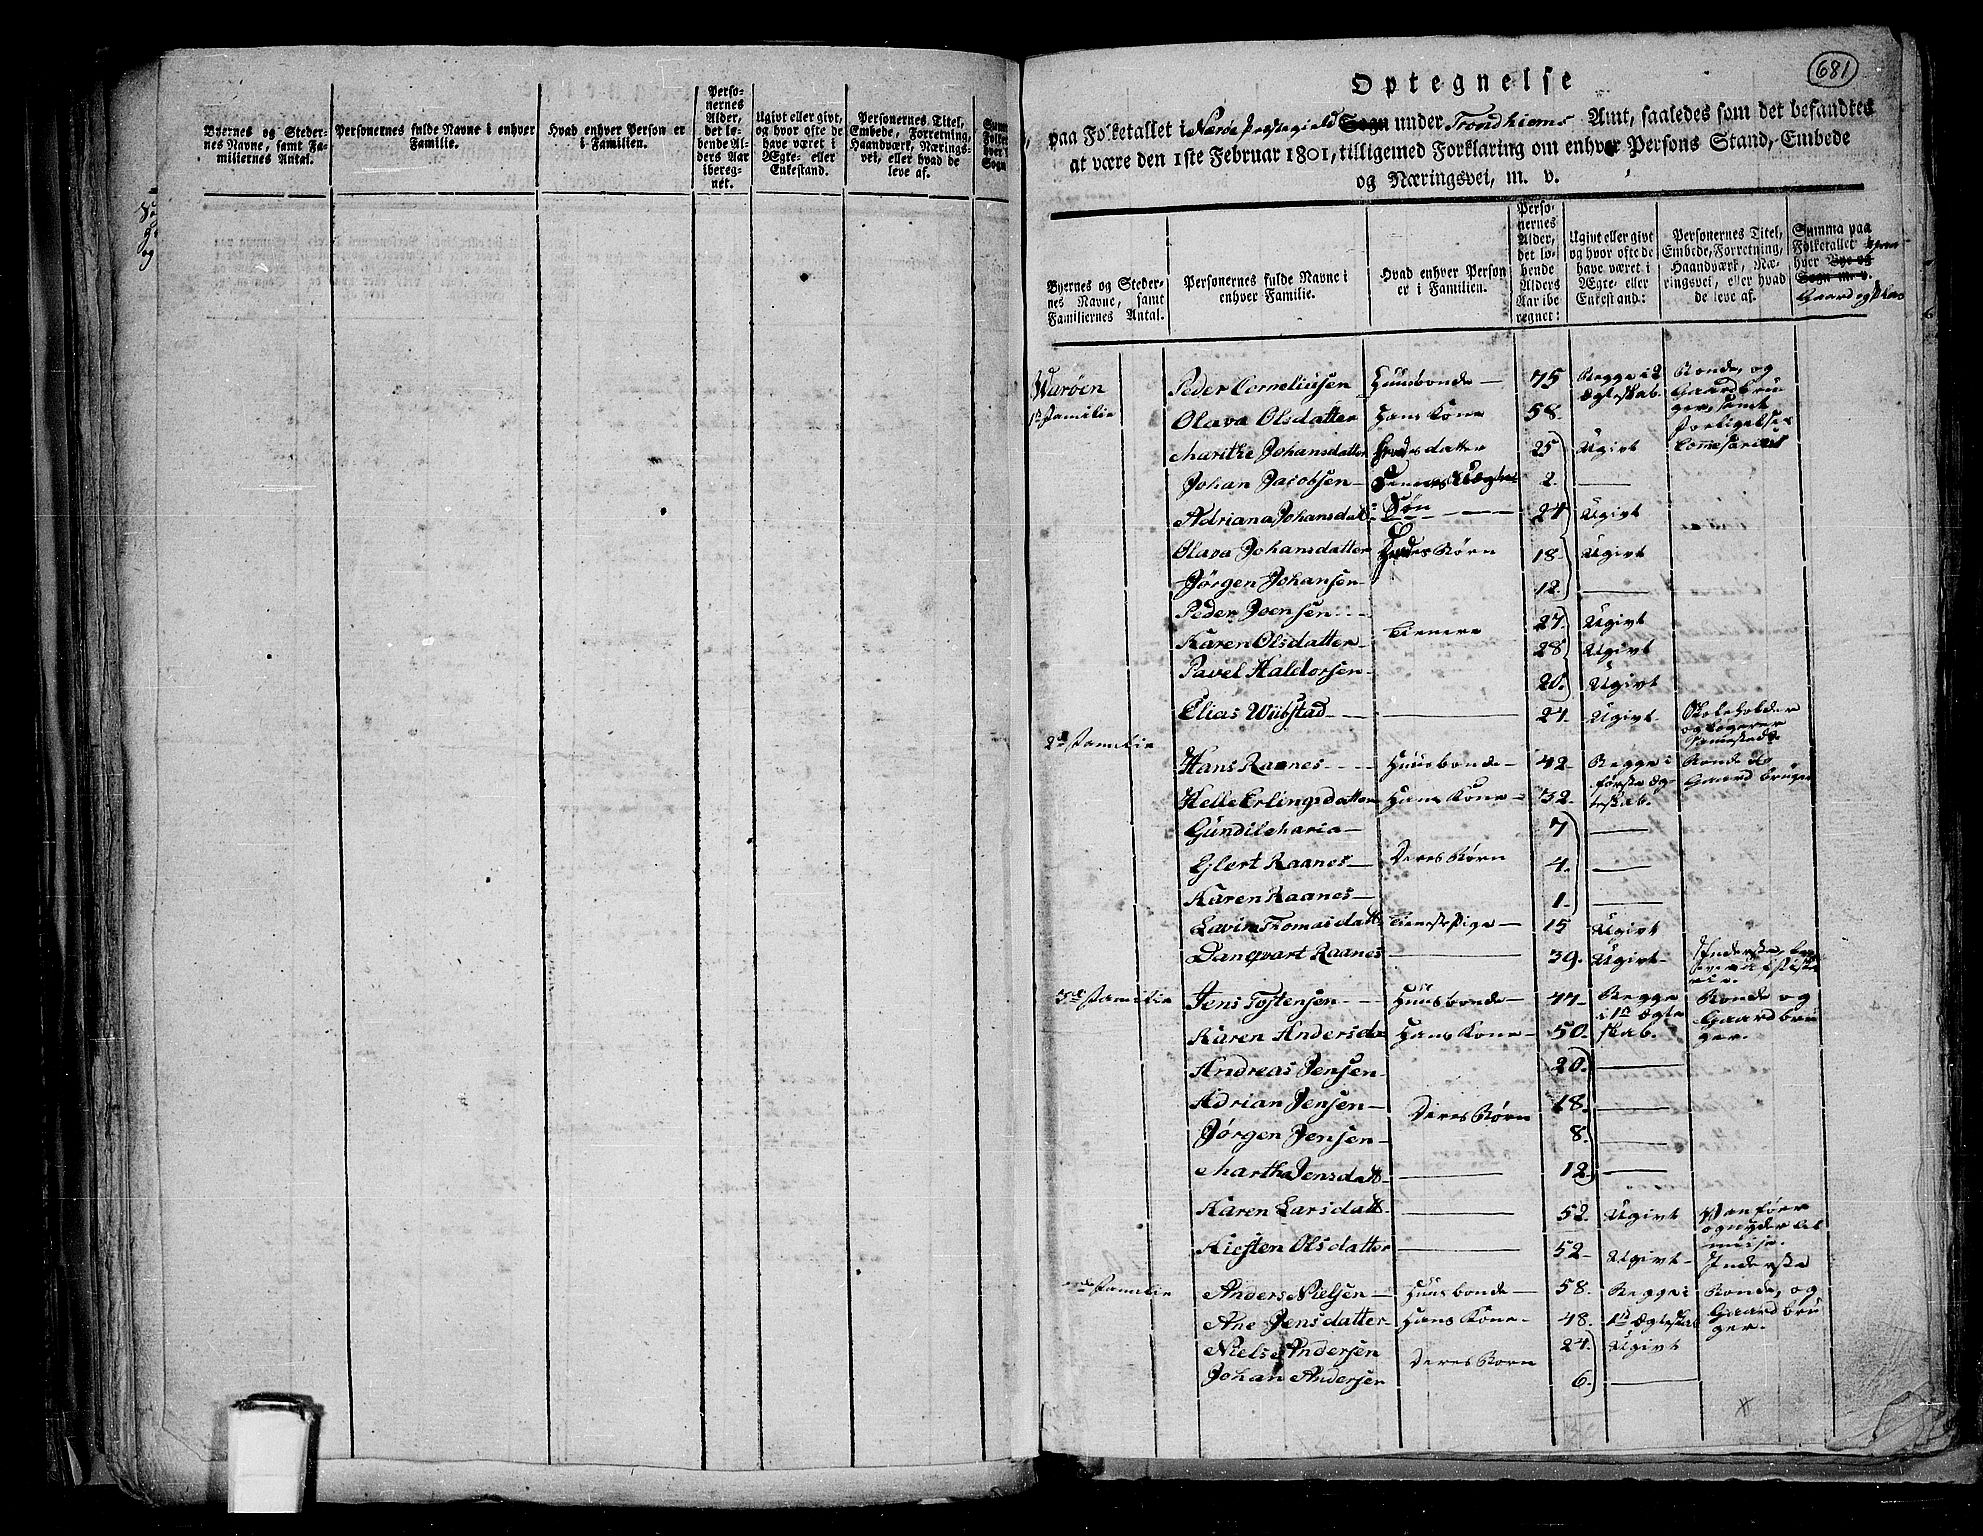 Byernes og Steder-
nes Navne, samt Fa-
miliernes Antal.
Personernes fulde Navne i enhver
Familie.
Hvad enhver Person er
i Familien.
Perso-
nernes
Alder,
det lø-
bende Al-
ders Aar
iberegnet.
Ugivt eller givt,
og hvor ofte de
have været i
Ægte- eller
Enkestand.
Personernes Titel,
Embede, Forretning,
Haandværk, Nærings-
vei, eller hvad de
leve af.
681
Optegnelse
paa Folketallet i Nærøe Præstegield Sogn under Trondhiems Amt, saaledes som det befandtes
at være den 1ste Februar 1801, tilligemed Forklaring om enhver Persons Stand, Embede
og Næringsvei, m. v.
Byernes og Steder-
nes Navne, samt
Familiernes Antal.
Personernes fulde Navne i
enhver Familie.
Hvad enhver Person
er i Familien.
Perso-
nernes
Alder,
det lø-
bende
Alders
Aar ibe
regnet:
Ugivt eller givt
og hvor ofte de
have været i
Ægte- eller
Enkestand:
Personernes Titel,
Embede, Forretning,
Haandværk, Næ-
ringsvei, eller hvad
de leve af.
Summa paa
Folketallet
hver Bye og
Sogn m. v.
Gaard og
Warøen Peder Corneliusen Huusbonde 75 Begge i 2 Bonde, og
1ste Familie Olava Olsdatter Hans Kone 58 Ægteskab. Gaardbru
ger, samt
Forligelses
Marithe Johansdatter datter 25 Ugivt Comesarius
Johan Jacobsen Uægte 2
Adriana Johansdat Søn 24 Ugivt
Olava Johansdatter Børn 18 Ugivt
Jørgen Johansen 12
Peder Joensen 27 Ugivt
Karen Olsdatter Tienere 28 Ugivt
Pavel Haldorsen 20 Ugivt
Elias Wübstad 27 Ugivt Skoleholder
og
2den Familie
Hans Raanes Huusbonde 42 Begge i Bonde og
første Æg Gaardbruger
Helle Erlingsdatter Hans Kone 32 teskab.
Gundil Maria 7
Ejlert Raanes Deres Børn 4
Karen Raanes 1
Lavina Thomasdatt Tienestepige 15 Ugivt
Danqvart Raanes 39 Ugivt Inderste,
3de Familie Jens Tostensen Huusbonde 47 Begge Bonde og
i 1ste Ægte Gaardbru
Karen Andersda Hans Kone 50 skab. ger.
Andreas Jensen 20
Adrian Jensen 18
Deres Børn
Jørgen Jensen 8
Martha Jensdatt 12
Karen Larsdatt 52 Ugivt Vanfør
og nyder Al
misse.
Kiesten Olsdatter 52 Ugivt Inderste
Familie Anders Nielsen Huusbonde 58 Begge i Bonde, og
Ane Jensdatter Hans Kone 48 1ste Ægteskab Gaardbru
ger.
Niels Andersen 24 Ugivt
Deres Børn
Johan Andersen 6